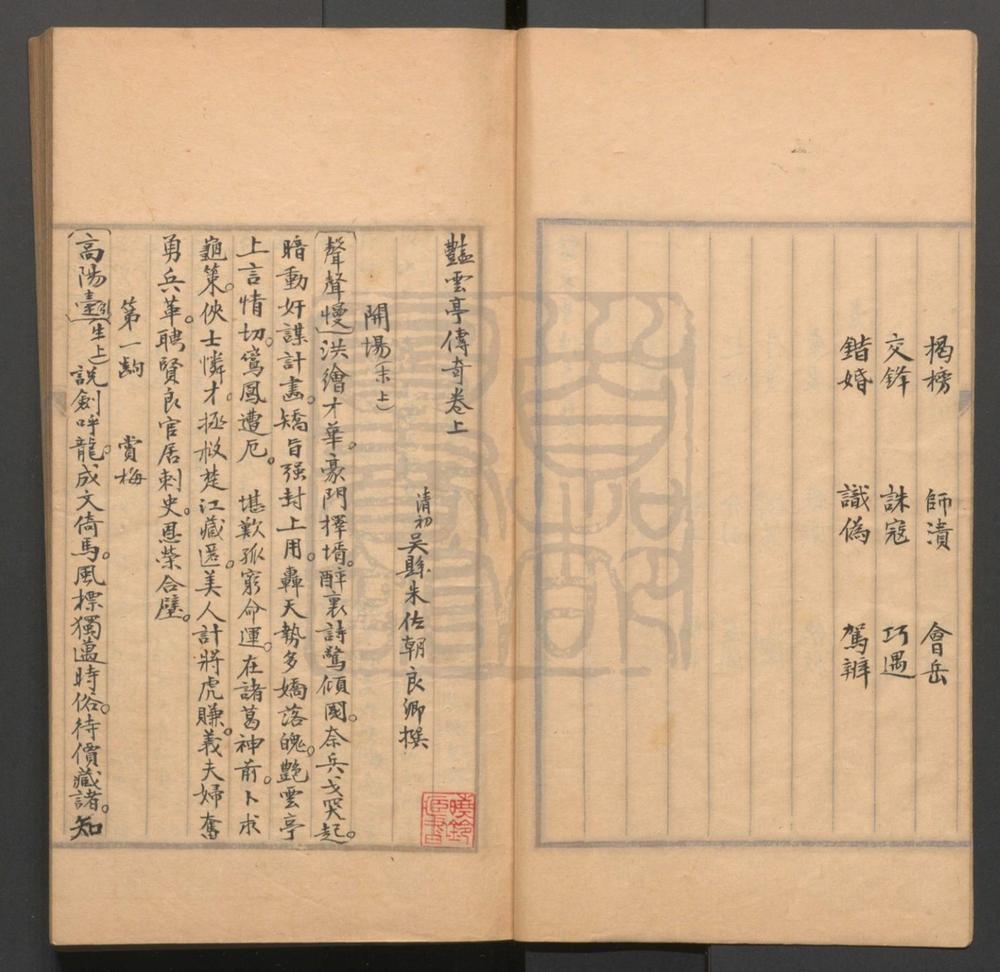 揭榜 師潰 會岳
交鋒 誅寇 巧遇
錯婚 識偽 駕辨
豔雲亭傳奇卷上
清初吳縣朱佐朝良卿撰
開場(末上)
聲聲慢洪繪才華。豪門擇壻。醉裏詩驚傾國。奈兵戈突起。
暗動奸謀計畫。矯旨强封上用。轟天勢多嬌落魄。艷雲亭
上言情切。鸞鳳遭厄。 堪歎孤窮命運。在諸葛神前。卜求
龜策。俠士憐才。拯救楚江藏匿。美人計將虎賺。義夫婦奮
勇兵革。聘賢良官居刺史。恩榮合璧。
第一齣 賞梅
高陽臺引(生上)說劍呼龍。成文倚馬。風標獨邁時俗。待價藏諸。知